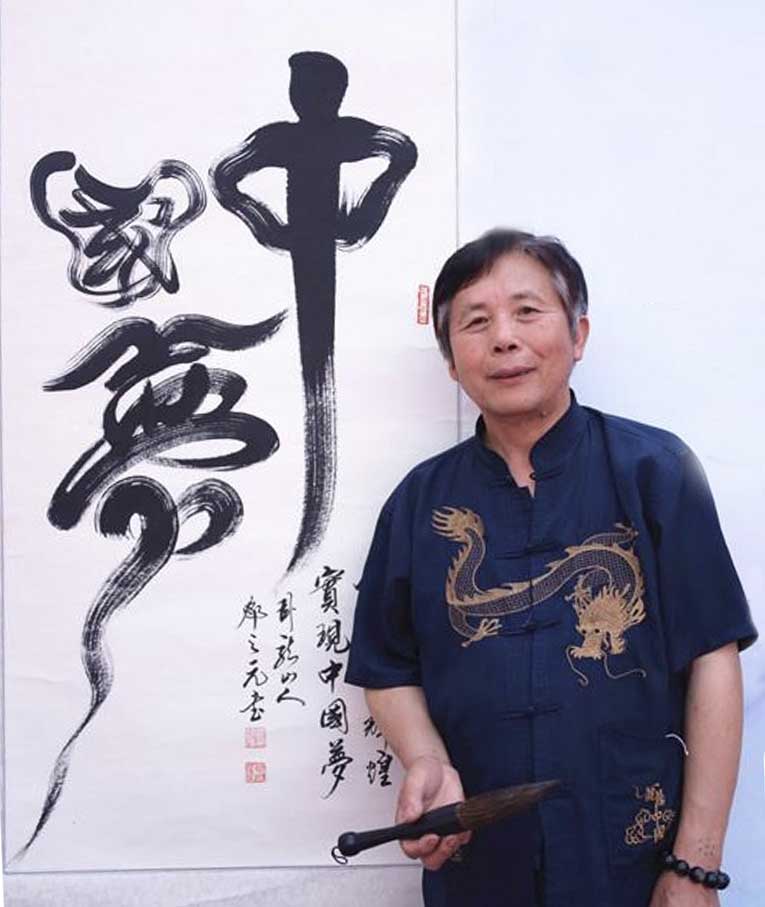 中
國夢
煌
實現中國夢
卧龍山人
鄢之元書